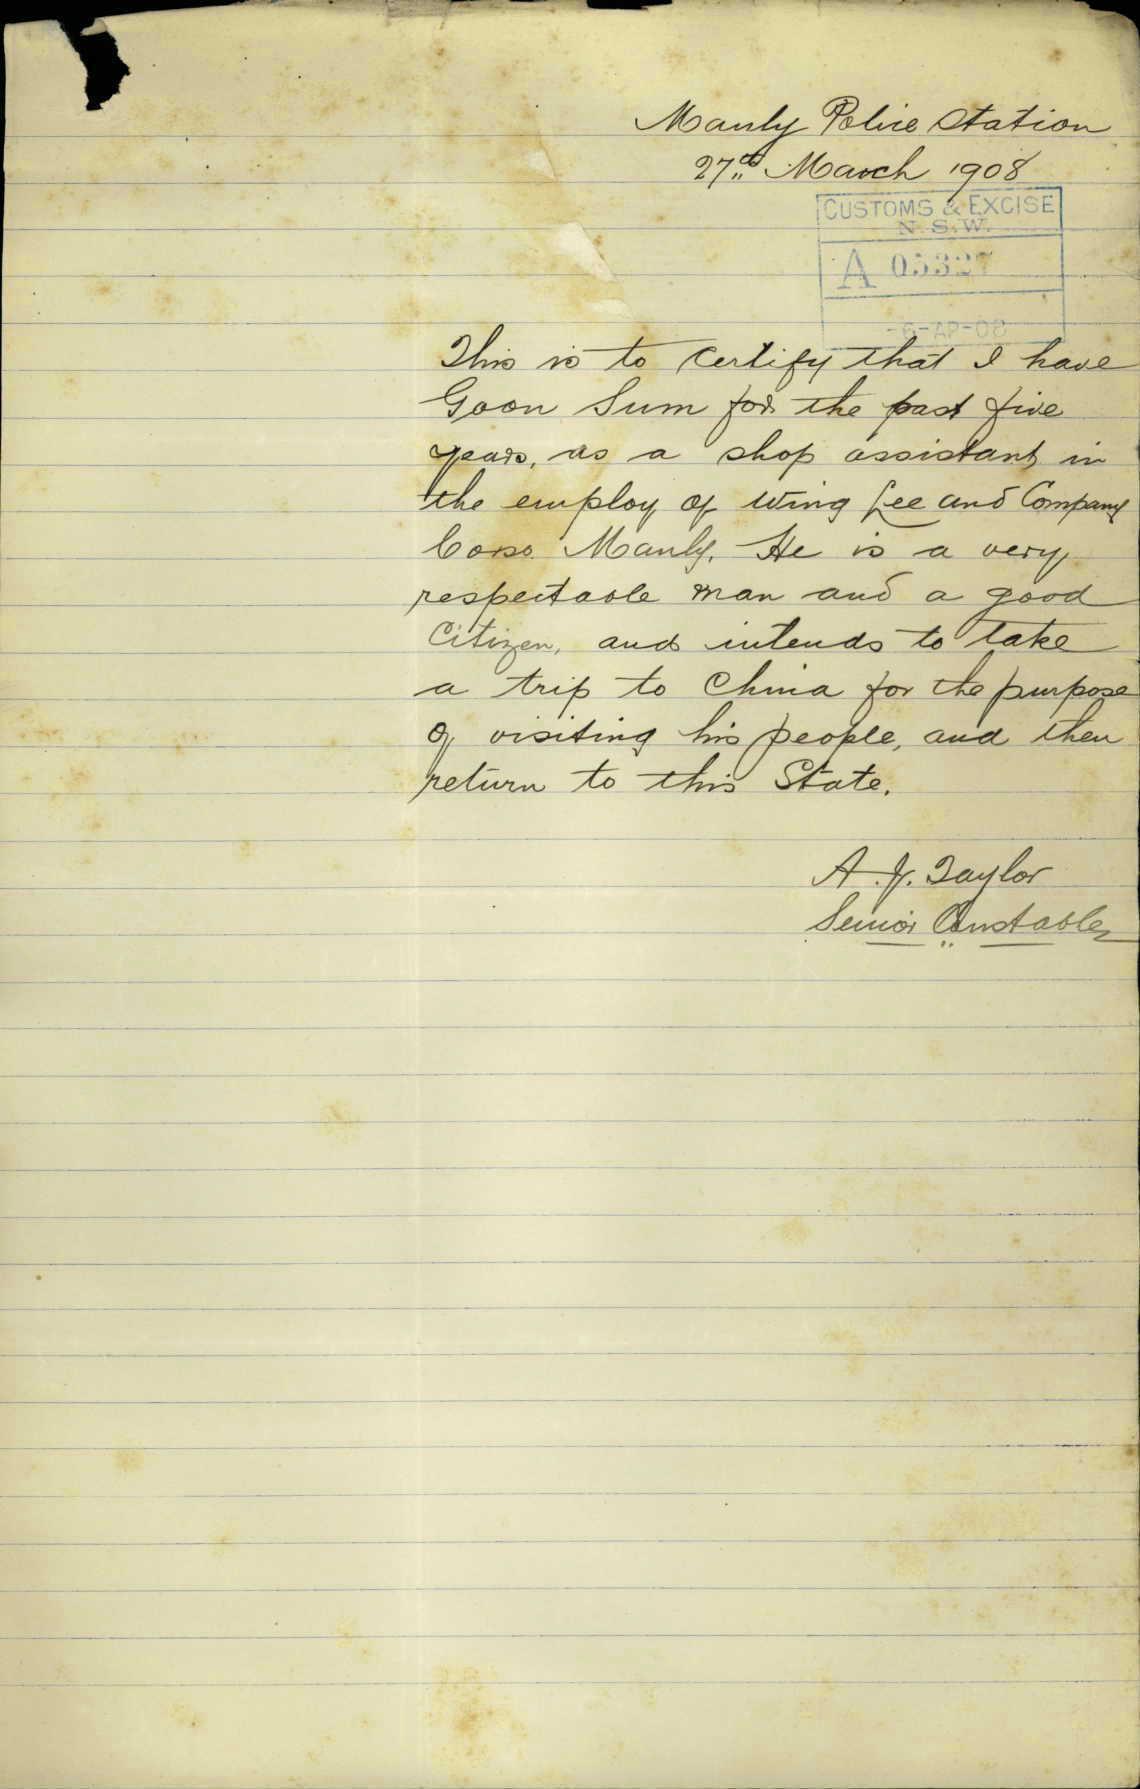 Manly Police Station
27th March 1908
CUSTOMS & EXCISE
N.S.W.
A 05327
-6-AP-08
This is to certify that I have
Goon Sum for the past five
years, as a shop assistant in
the employ of Wing Lee and Company
Corso Manly. He is a very
respectable man and a good
Citizen, and intends to take
a trip to China for the purpose
of visiting his people, and then
return to this State.
A. J. Taylor
Senior Constable